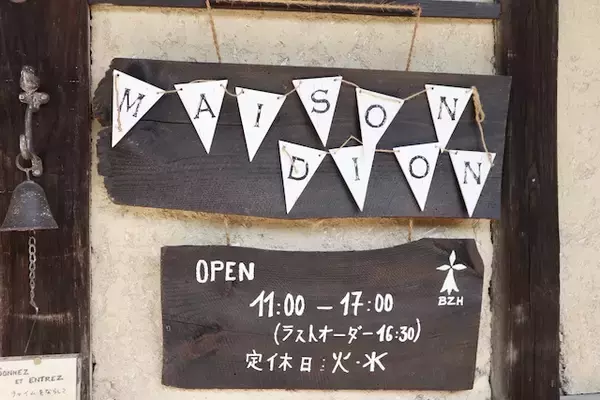 MAISON
DION
OPEN
11:00 – 17:00
(ラストオーダー 16:30)
定休日:火・水
BZH
SONNEZ
ET ENTREZ